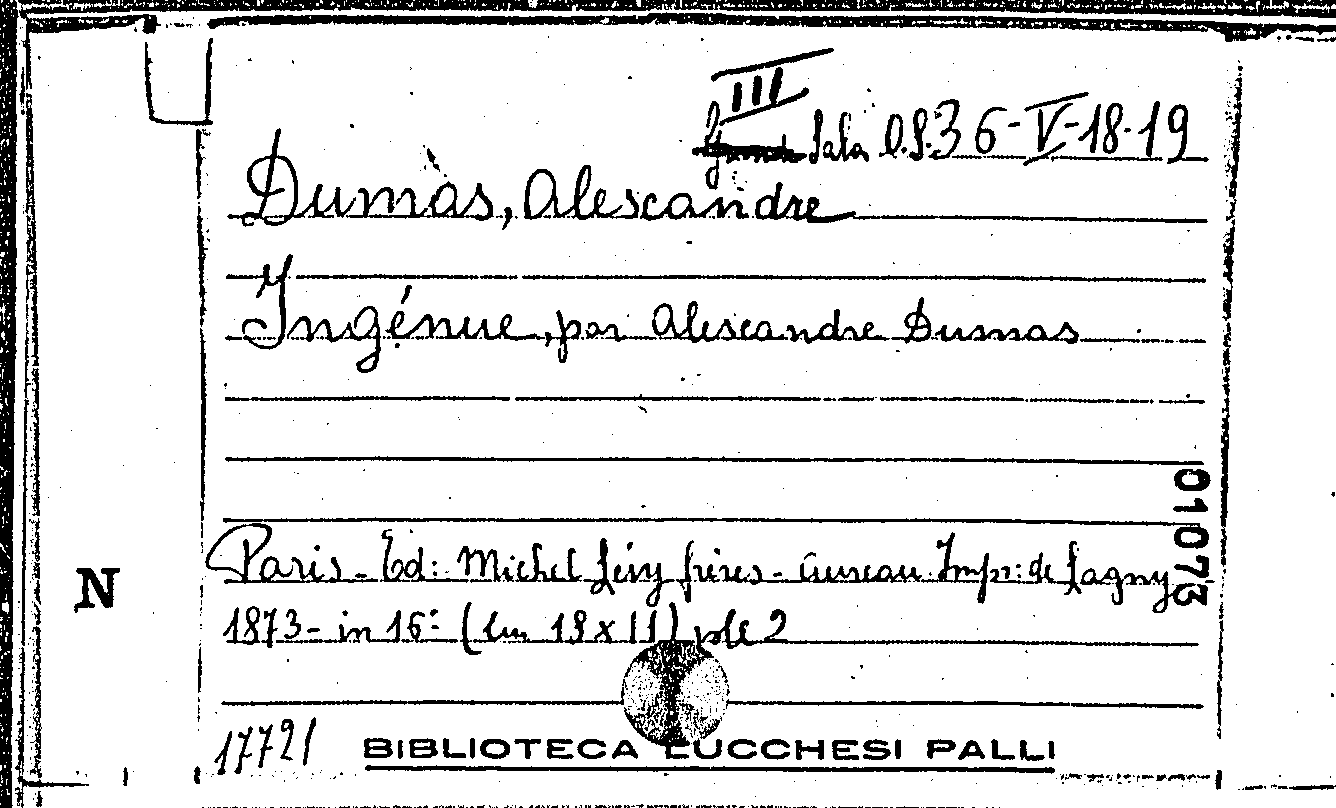 III
Grande Sala O.S. 36-V-18-19
Dumas, Alescandre
Ingénue, par Alescandre Dumas
Paris - Ed: Michel Lévy frères - Aureau Impr: de Lagny
1873 - in 16º (cm 18 x 11) vol 2
17721
BIBLIOTECA LUCCHESI PALLI
N
01073